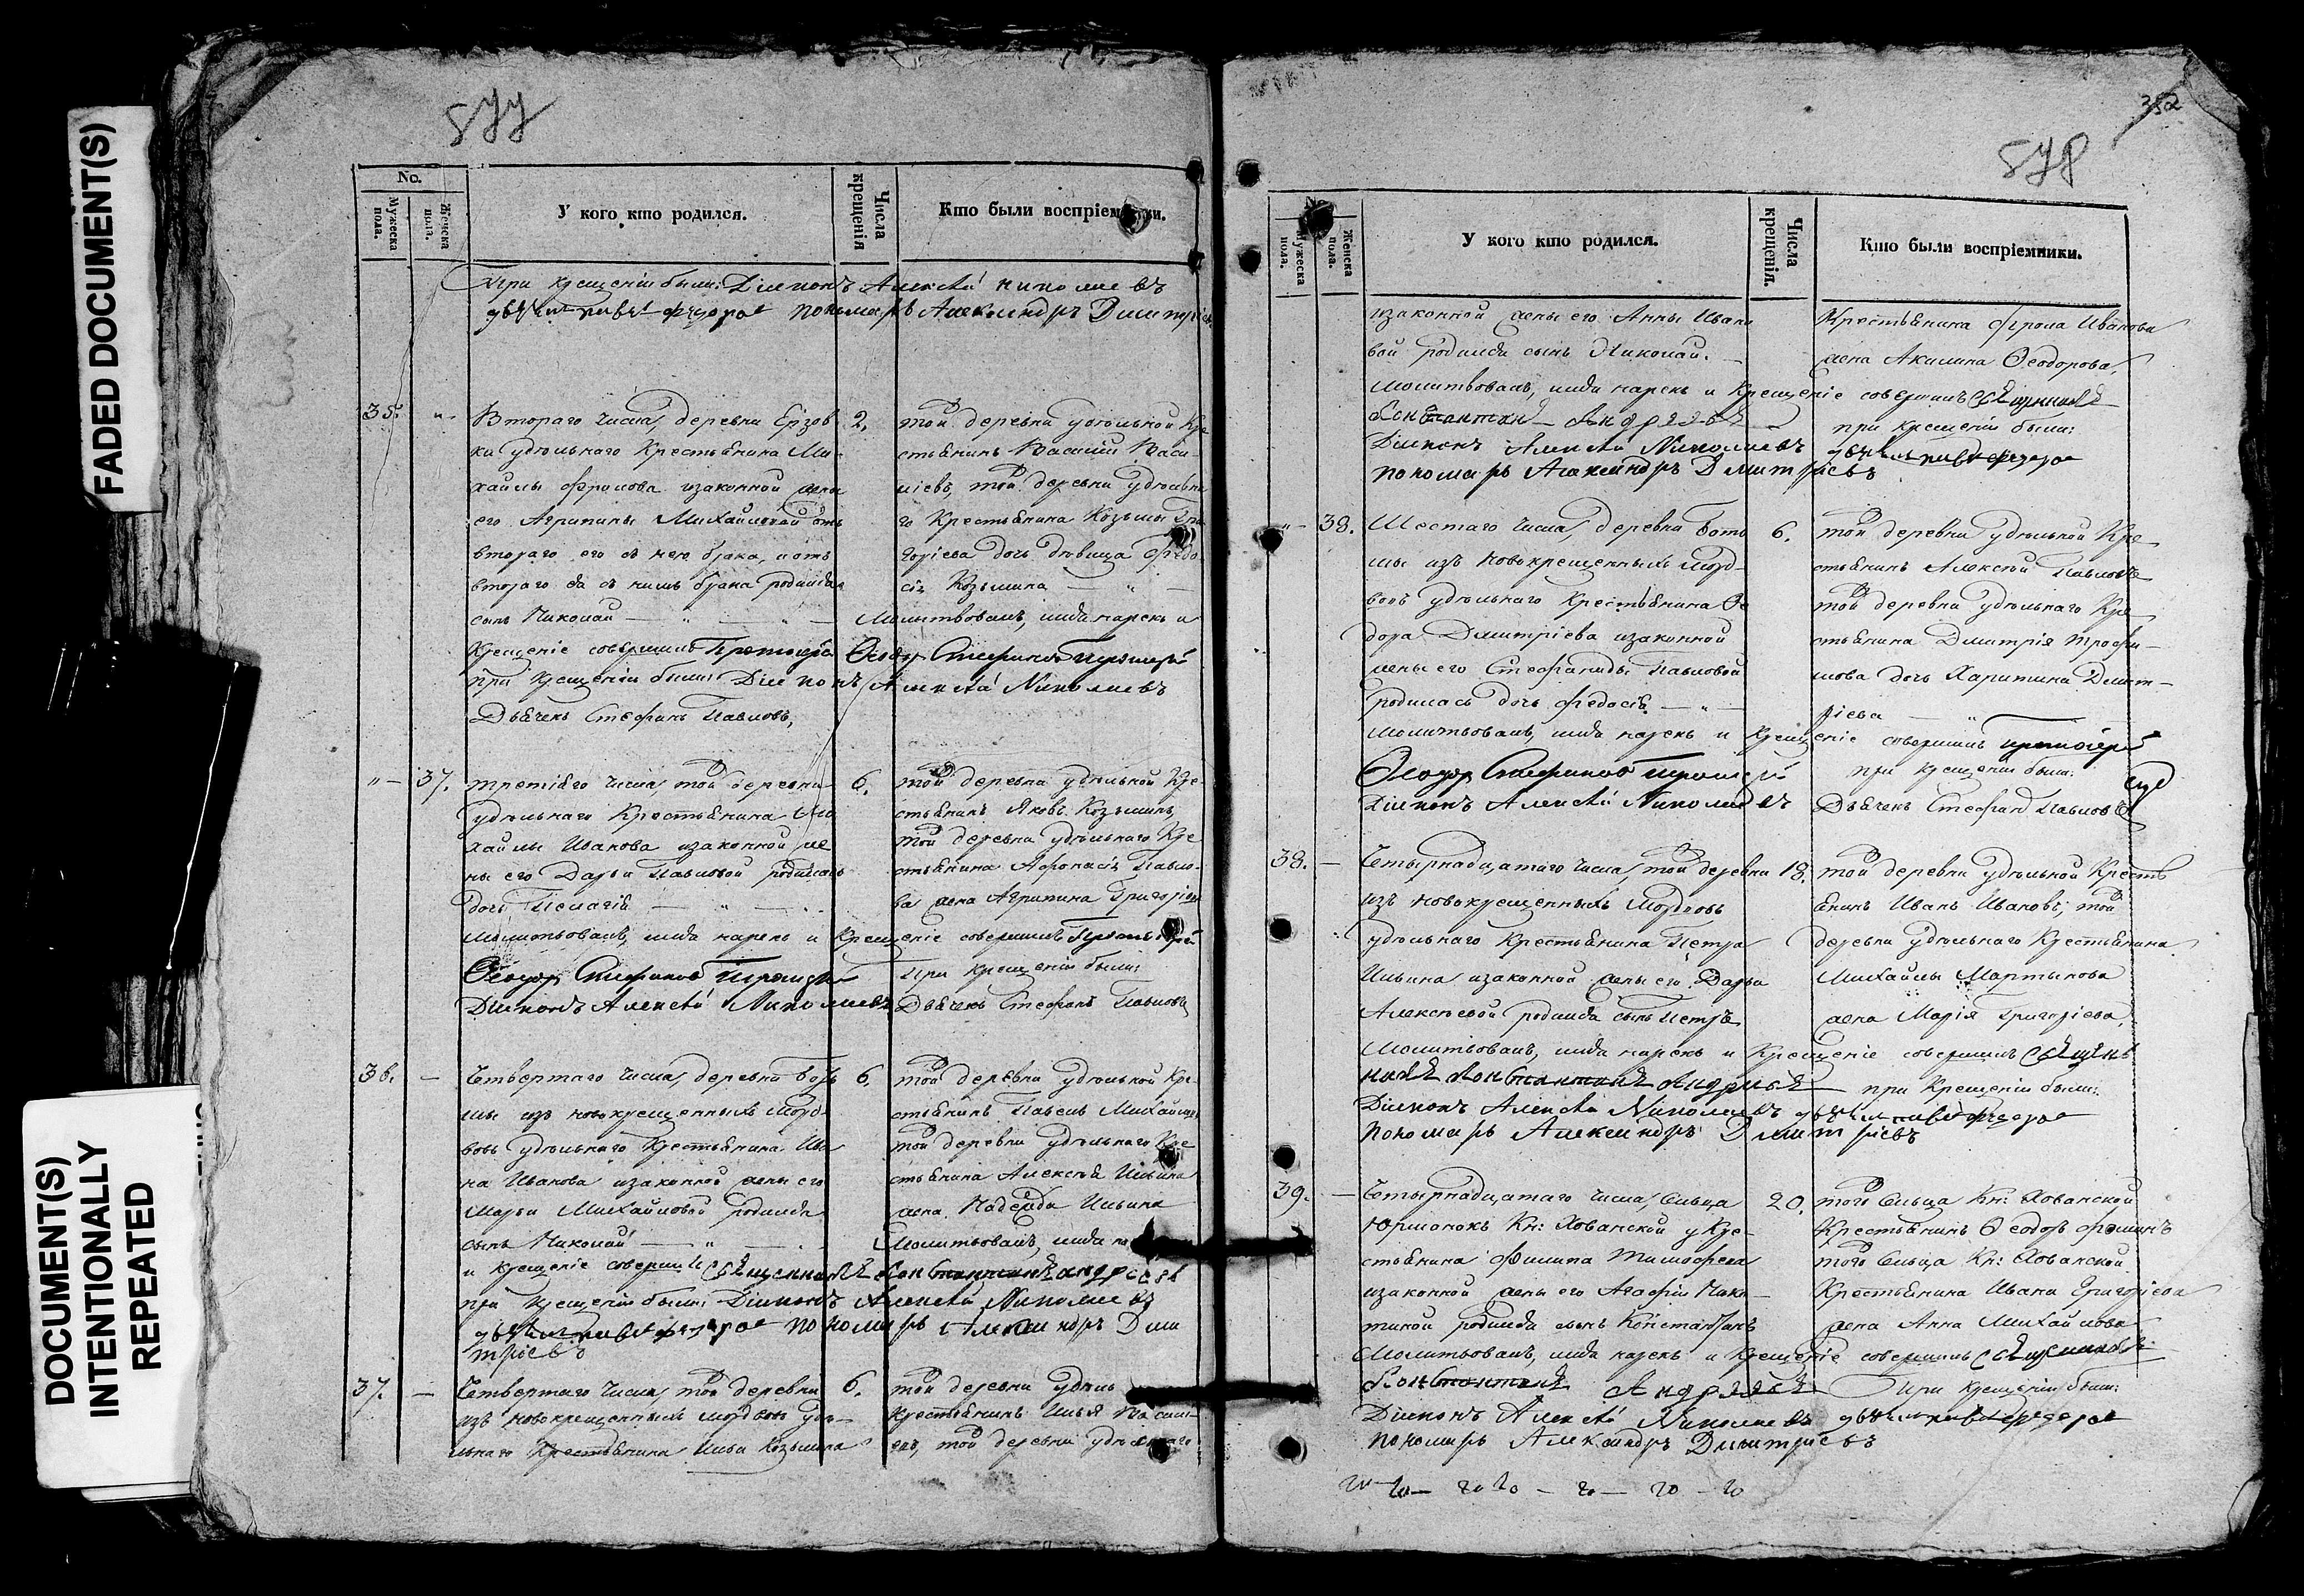 FADED DOCUMENT(S)
DOCUMENT(S)
INTENTIONALLY
REPEATED
577
No.
Мужеска пола.
Женска пола.
У кого кто родился.
Числа крещенія
Кто были воспріемники.
При крещеніи были: Діаконъ Алексѣй Николаевъ
пономарь Александръ Димитріевъ
35. Втораго числа, деревни Ерзов 2. той деревни удѣльной Кре
ки удѣльнаго Крестьянина Ми- стьянинъ Василій Васи-
хайлы Фролова изаконной жены ліевъ, той деревни удѣльна
его Агрипины Михайловой отъ го Крестьянина Козьмы Гри
втораго его съ нею брака, и отъ горіева дочь дѣвица Федо
втораго ея съ нимъ брака родился сія Козьмина
сынъ Николай Молитвовалъ, имя нарекъ и
Крещеніе совершилъ Протоіерей Ѳеодор Стефановъ
при крещеніи были: Діаконъ Алексѣй Николаевъ
Дьячекъ Стефанъ Павловъ,
37. третіяго числа, той деревни 6. той деревни удѣльной Кре-
удѣльнаго Крестьянина Ми стьянинъ Яковъ Козьминъ,
хайлы Иванова изаконной же той деревни удѣльнаго Кре
ны его Дарьи Павловой родилась стьянина Афонасія Павло-
дочь Пелагія ва жена Агрипина Григоріева
Молитвовалъ, имя нарекъ и Крещеніе совершилъ Протоіерей
Ѳеодор Стефановъ при крещеніи были:
Діаконъ Алексѣй Николаевъ Дьячекъ Стефанъ Павловъ
36. Четвертаго числа, деревни 6. той деревни удѣльной Кре-
изъ новокрещенныхъ Морд- стьянинъ Павелъ Михайловъ
вовъ удѣльнаго Крестьянина Ива той деревни удѣльнаго Кре
на Иванова изаконной жены его стьянина Алексѣя Ильина
Марьи Михайловой родился жена Надежда Ильина
сынъ Николай Молитвовалъ, имя на
и крещеніе соверши Священникъ Константинъ Андреевъ
при крещеніи были: Діаконъ Алексѣй Николаевъ
пономарь Александръ Дми
тріевъ
37. Четвертаго числа, той деревни 6. той деревни удѣль
изъ новокрещенныхъ мордвовъ удѣ- Крестьянинъ Илья
льнаго Крестьянина Ильи Козьмина той деревни удѣльнаго
352
578
Мужеска пола.
Женска пола.
У кого кто родился.
Числа крещенія.
Кто были воспріемники.
изаконной жены его Анны Ивано Крестьянина Фрола Иванова
вой родился сынъ Николай. жена Акилина Ѳеодорова,
молитвовалъ, имя нарекъ и Крещеніе совершилъ Священникъ
Константинъ Андреевъ при крещеніи были:
Діаконъ Алексѣй Николаевъ
пономарь Александръ Дмитріевъ
38. Шестаго числа, деревни 6. той деревни удѣльной Кре
изъ новокрещенныхъ Морд- стьянинъ Алексѣй Павловъ
вовъ удѣльнаго Крестьянина Ѳе той деревни удѣльнаго Кре
дора Димитріева изаконной стьянина Димитрія Трофи-
жены его Стефаниды Павловой мова дочь Харитина Димит-
родилась дочь Федосія ріева
молитвовалъ, имя нарекъ и Крещеніе совершилъ протоіерей
Ѳеодор Стефановъ при крещеніи были:
Діаконъ Алексѣй Николаевъ Дьячекъ Стефанъ Павловъ
38. Четырнадцатаго числа, той деревни 18. той деревни удѣльной Кресть
изъ новокрещенныхъ Мордвовъ янинъ Иванъ Ивановъ, той
удѣльнаго Крестьянина Петра деревни удѣльнаго Крестьянина
Ильина изаконной жены его Дарьи Михайлы Мартынова
Алексѣевой родился сынъ Петръ жена Марія Григоріева,
Молитвовалъ, имя нарекъ и Крещеніе совершилъ Священ
никъ Константинъ Андреевъ при Крещеніи были:
Діаконъ Алексѣй Николаевъ
пономарь Александръ Дмитріевъ
39. Четырнадцатаго числа, Сельца 20. того Сельца Кн: Хованской
Юрманокъ Кн: Хованской у Кре- Крестьянинъ Ѳеодоръ Фоминъ
стьянина Филипа Тимофеева того Сельца Кн: Хованской
изаконной жены его Агафіи Ники- Крестьянина Ивана Григоріева
тиной родился сынъ Константинъ жена Анна Михайлова
Молитвовалъ, имя нарекъ и Крещеніе совершилъ Священникъ
Константинъ Андреевъ При крещеніи были:
Діаконъ Алексѣй Николаевъ
пономарь Александръ Димитріевъ